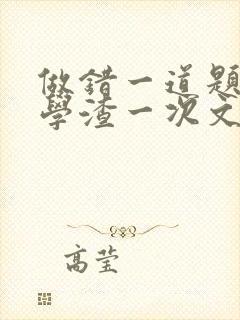 做錯一道題
學渣一次文
高莹